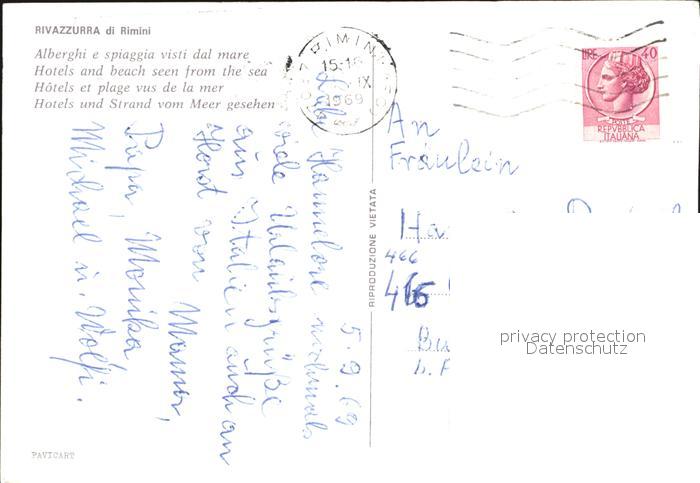 RIVAZZURRA di Rimini
Alberghi e spiaggia visti dal mare
Hotels and beach seen from the sea
Hôtels et plage vus de la mer
Hotels und Strand vom Meer gesehen
RIMINI
15-16
IX
1969
LIRE 40
POSTE
REPVBBLICA
ITALIANA
5.9.69
Liebe Hannelore nochmals
viele Urlaubsgrüße
aus Italien auch an
Horst von Mama,
Papa, Monika,
Michael u. Wolfi.
RIPRODUZIONE VIETATA
An
Fräulein
Ha
466
46
Bu
privacy protection
Datenschutz
PAVICART